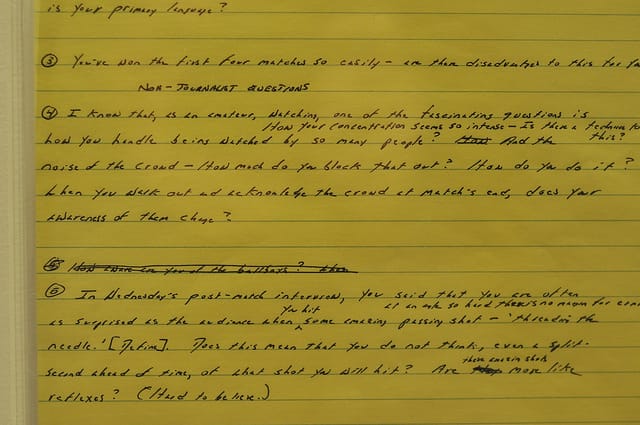 is your primary language?
③ You've won the first four matches so easily – are there disadvantages to this for you
NON-JOURNALIST QUESTIONS
④ I know that, as an amateur, watching, one of the fascinating questions is
How your concentration seems so intense – Is there a technique to
how you handle being watched by so many people? How And the this?
noise of the crowd – How much do you block that out? How do you do it?
When you walk out and acknowledge the crowd at match's end, does your
awareness of them change?
⑤ How aware are you of the ballboys? When
⑤ In Wednesday's post-match interview, you said that you are often
you hit at an angle so hard there is no room for error
as surprised as the audience when some amazing passing shot – 'threading the
needle.' [Define]. Does this mean that you do not think, even a split-
second ahead of time, of what shot you will hit? Are they more like
these amazing shots
reflexes? (Hard to believe.)